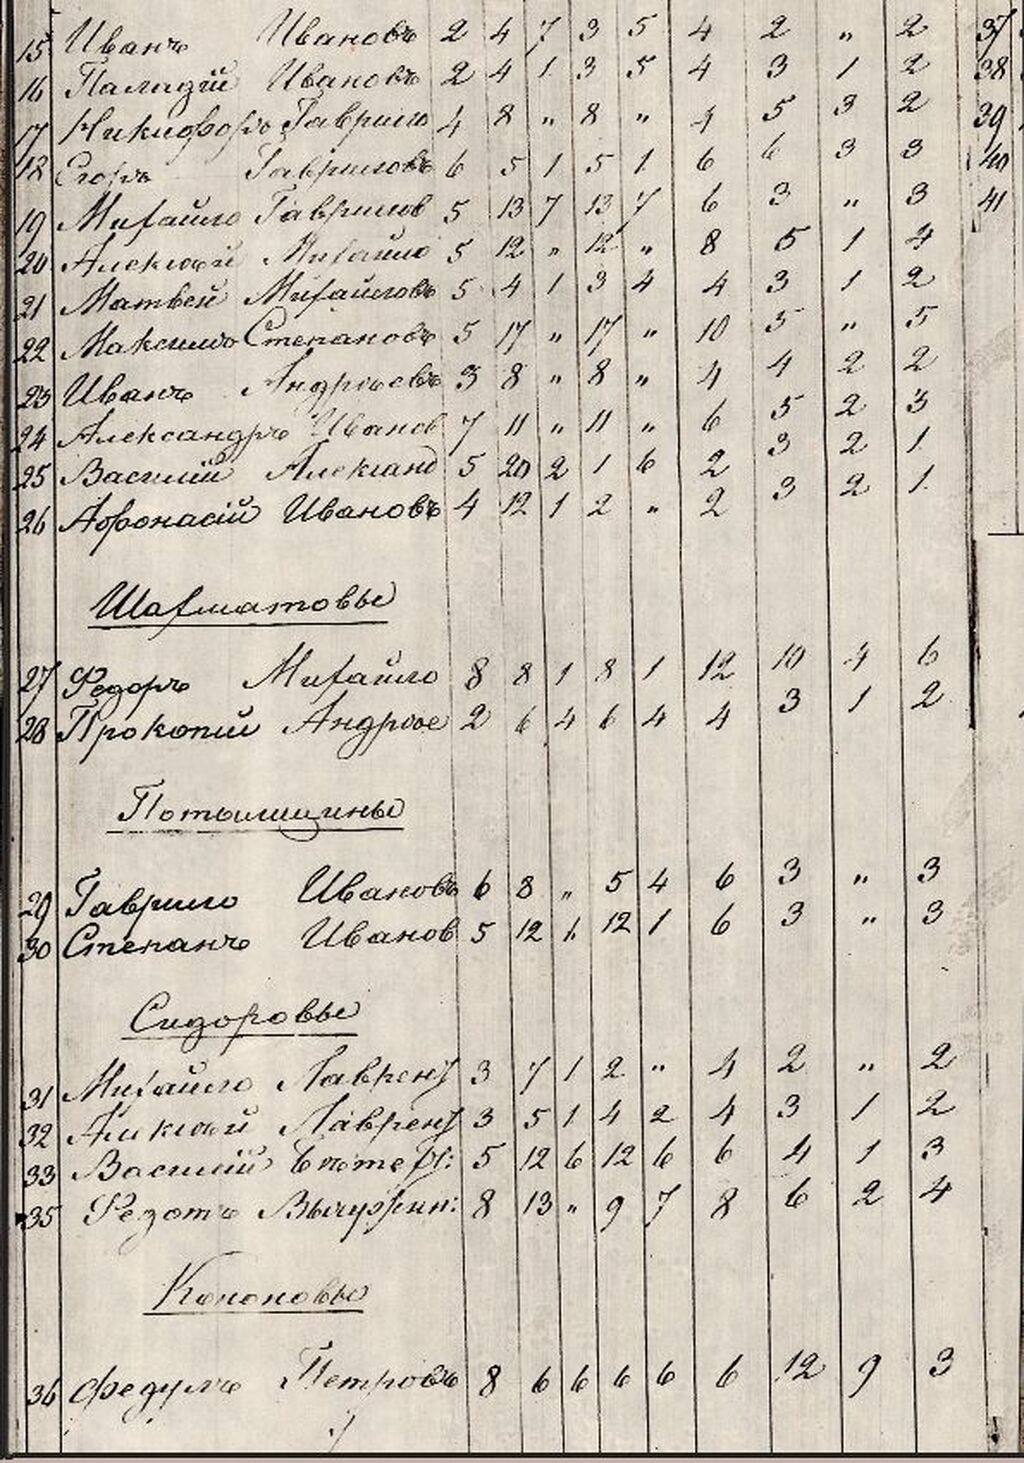 15 Иванъ Ивановъ 2 4 7 3 5 4 2 " 2 37
16 Паладій Ивановъ 2 4 1 3 5 4 3 1 2 38
17 Никифоръ Гаврило 4 8 " 8 " 4 5 3 2 39
18 Егоръ Гавриловъ 6 5 1 5 1 6 6 3 3 40
19 Михайло Гаврилов 5 13 7 13 7 6 3 " 3 41
20 Алексѣй Михайло 5 12 " 12 " 8 5 1 4
21 Матвей Михайловъ 5 4 1 3 4 4 3 1 2
22 Максимъ Степановъ 5 17 " 17 " 10 5 " 5
23 Иванъ Андрѣевъ 3 8 " 8 " 4 4 2 2
24 Александръ Иванов 7 11 " 11 " 6 5 2 3
25 Василій Александ 5 20 2 1 6 2 3 2 1
26 Афонасій Ивановъ 4 12 1 2 " 2 3 2 1
Шахматовы
27 Ѳедоръ Михайло 8 8 1 8 1 12 10 4 6
28 Прокопій Андрѣе 2 6 4 6 4 4 3 1 2
Потылицины
29 Гаврило Ивановъ 6 8 " 5 4 6 3 " 3
30 Степанъ Иванов 5 12 1 12 1 6 3 " 3
Сидоровы
31 Михайло Лаврен 3 7 1 2 " 4 2 " 2
32 Алексѣй Лаврен 3 5 1 4 2 4 3 1 2
33 Василій 5 12 6 12 6 6 4 1 3
35 Ѳедотъ 8 13 " 9 7 8 6 2 4
Кононовы
36 Федулъ Петровъ 8 6 6 6 6 6 12 9 3